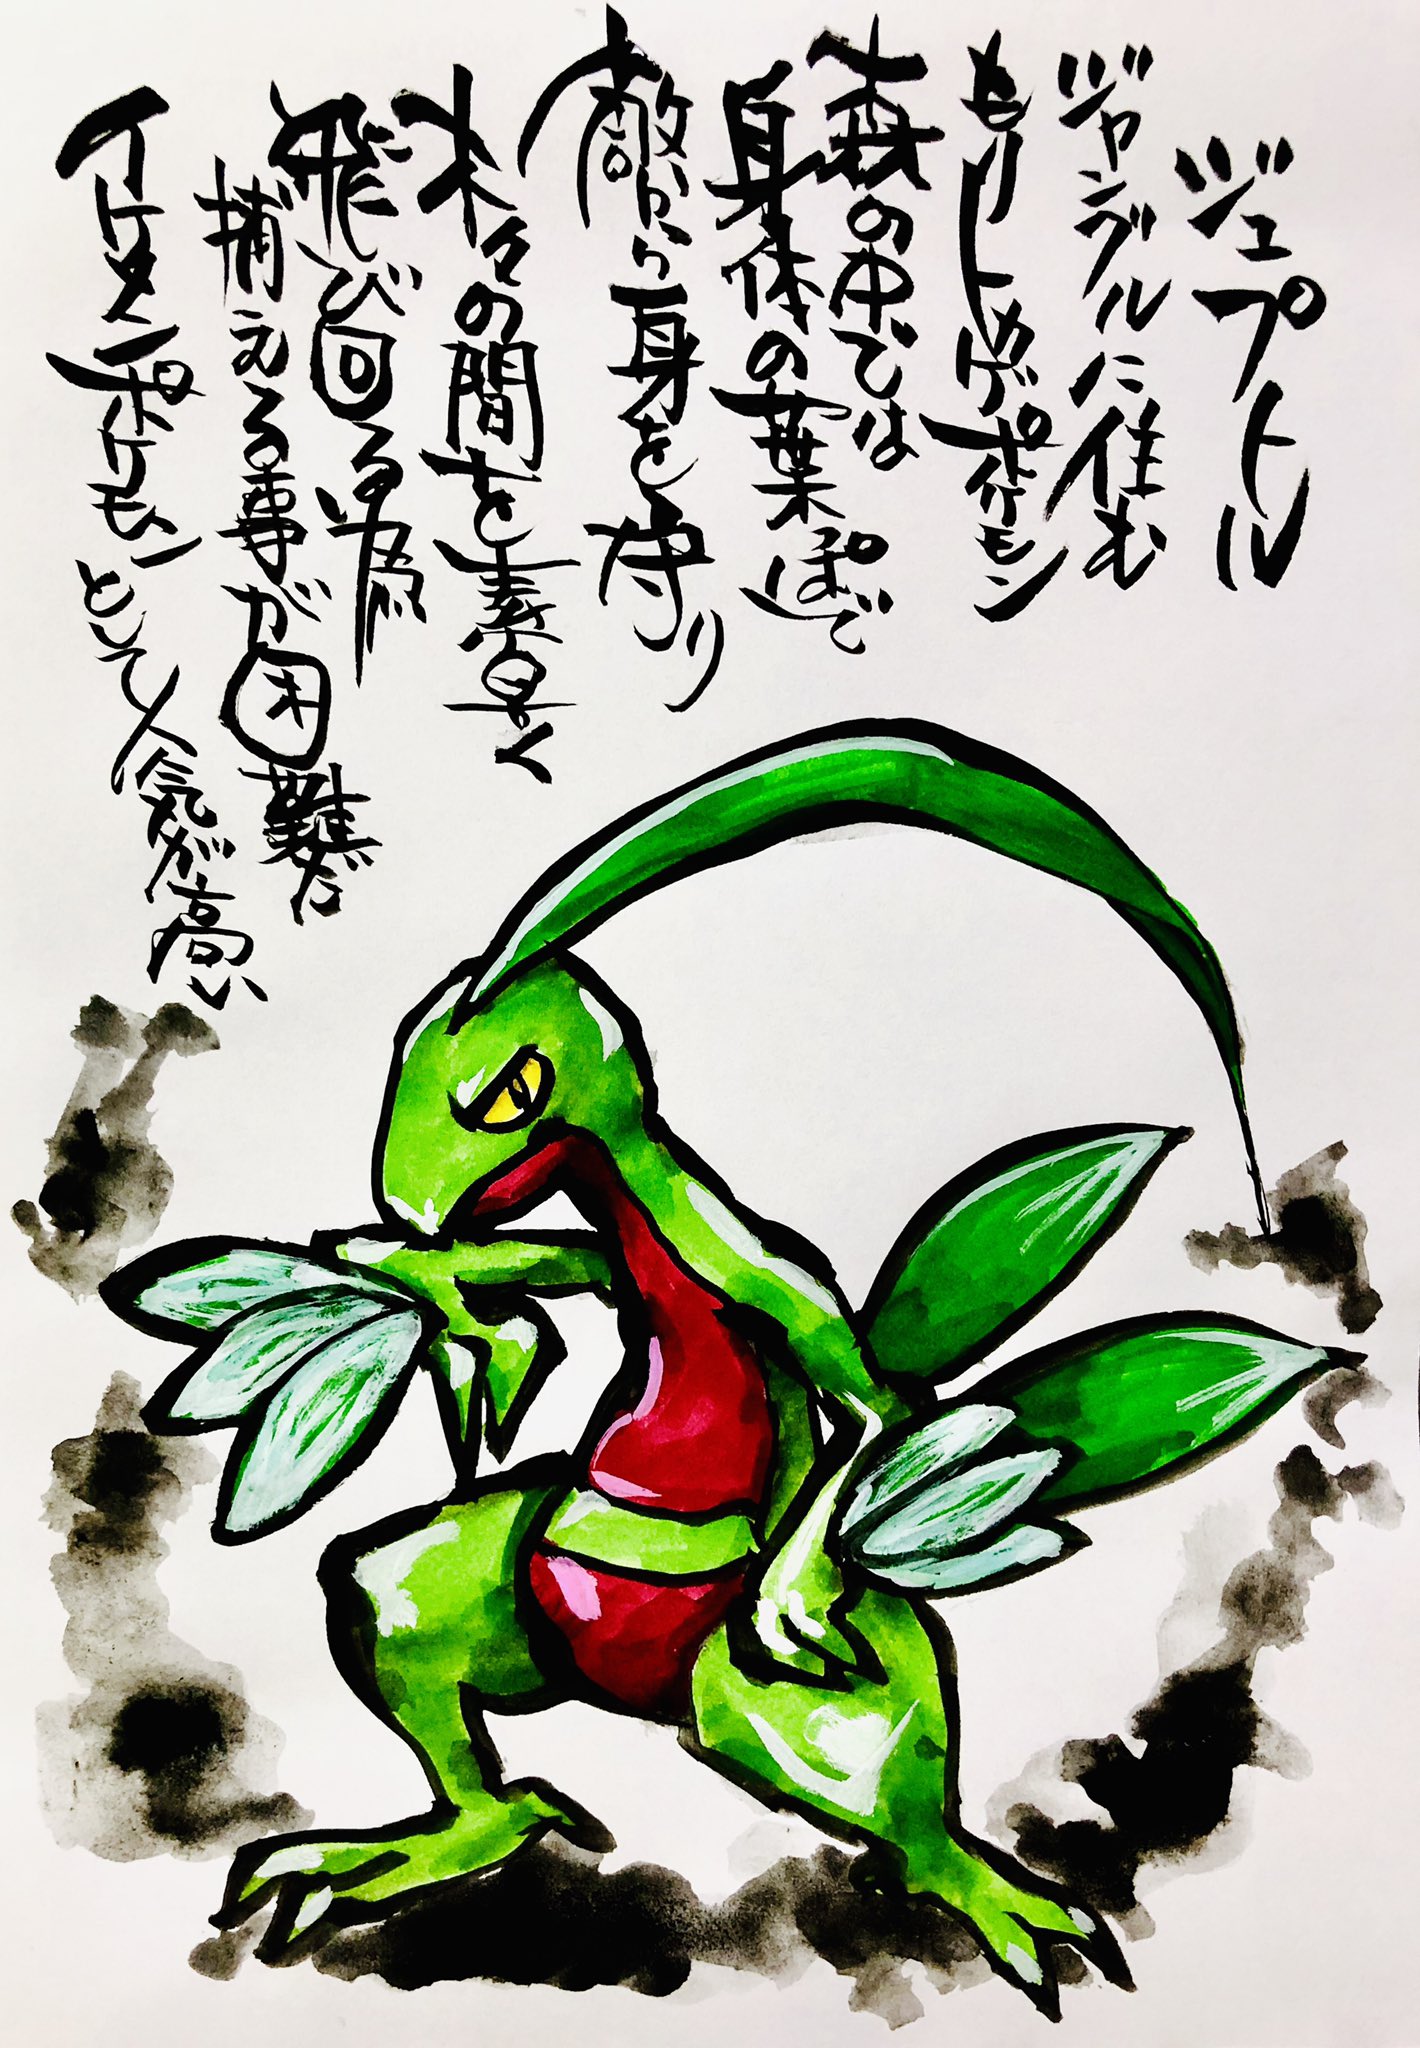 ジュプトル
ジャングルに住む
もりトカゲポケモン
森の中では
身体の葉っぱで
敵から身を守り
木々の間を素早く
飛び回る為
捕える事が困難だ
イケメンポケモンとして人気が高い